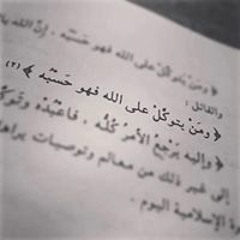 ﴿ ومَنْ يتوكَّلْ على الله فهو حَسْبُه ﴾ ، إنَّ الله
والقائل :
﴿ ومَنْ يتوكَّلْ على الله فهو حَسْبُه ﴾ (٢)
﴿ وإليه يَرْجِعُ الأمرُ كُلُّه ، فاعْبُدْه وتوكَّلْ
إلى غير ذلك من معالم وتوصيات يراها
الإسلامية اليوم .